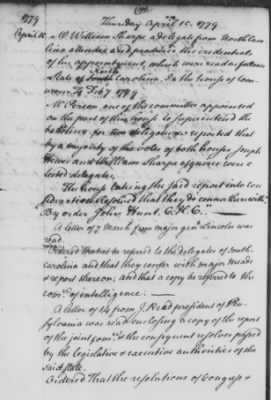 Thursday April 15. 1779
1779
April 15 Mr William Sharpe a delegate from North Caro
lina attended and produced the credentials
of his appointment, which were read as follows
State of North Carolina In the house of com
mons Feby 1779
Mr Person one of the committee appointed
on the part of this house to superintend the
balloting for two delegates reported that
by a majority of the vote of both houses Joseph
Hewes and William Sharpe esquires were e
lected delegates.
The house taking the said report into con
sideration resolved that they do concur therewith
By order John Hunt C.H.C.
A letter of 7 March from major gen Lincoln was
read.
Ordered that it be referred to the delegates of South
Carolina and that they confer with major Meade
& report thereon; and that a copy be referred to the
comee of intelligence
A letter of 14 from J. Read president of Pen
sylvania was read enclosing a copy of the report
of the joint comee & the consequent resolves passed
by the legislative & executive authorities of the
said state.
Ordered That the resolutions of Congress &